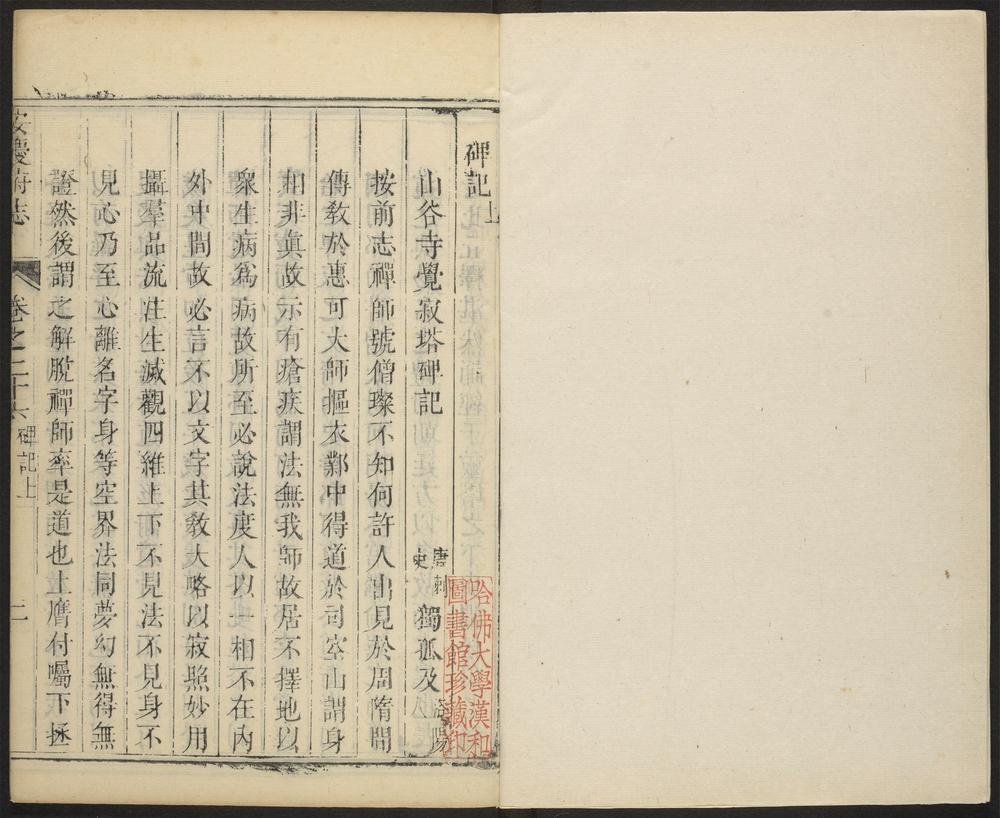 碑記上
山谷寺覺寂塔碑記 唐刺史 獨孤及 洛陽
按前志禪師號僧璨不知何許人出見於周隋間
傳教於惠可大師摳衣鄴中得道於司空山謂身
相非眞故示有瘡疾謂法無我師故居不擇地以
衆生病爲病故所至必說法度人以一相不在內
外中間故必言不以文字其教大略以寂照妙用
攝羣品流注生滅觀四維上下不見法不見身不
見心乃至心離名字身等空界法同夢幻無得無
證然後謂之解脫禪師率是道也上膺付囑下拯
安慶府志
卷之二十六 碑記上
一
哈佛大學漢和
圖書館珍藏印